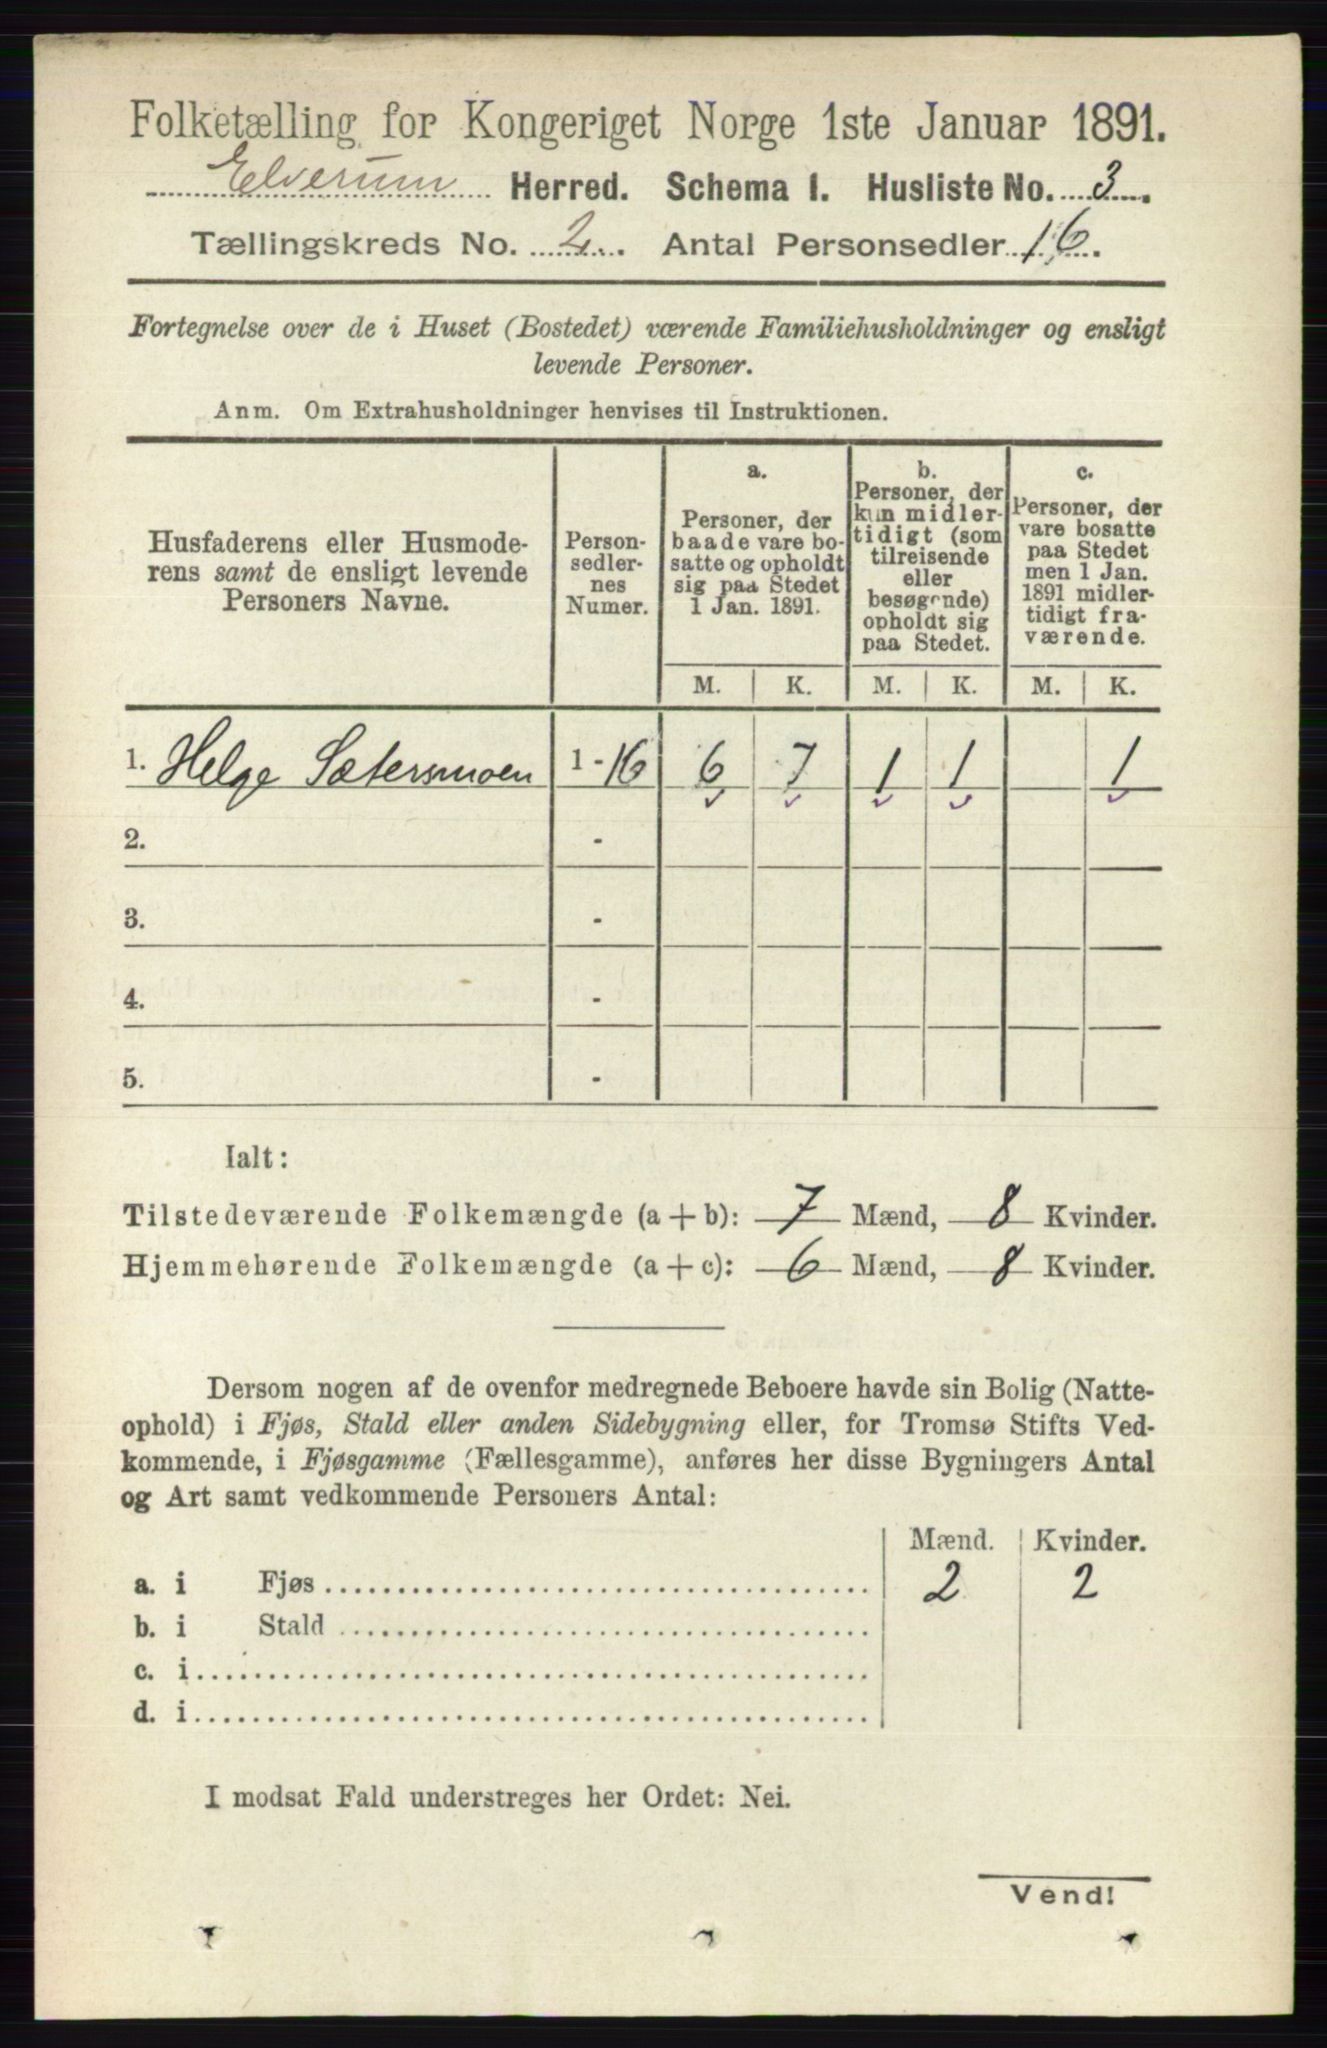 Folketælling for Kongeriget Norge 1ste Januar 1891.
Elverum Herred. Schema I. Husliste No. 3.
Tællingskreds No. 2. Antal Personsedler 16.
Fortegnelse over de i Huset (Bostedet) værende Familiehusholdninger og ensligt
levende Personer.
Anm. Om Extrahusholdninger henvises til Instruktionen.
Husfaderens eller Husmode-
rens samt de ensligt levende
Personers Navne.
Person-
sedler-
nes
Numer.
a.
Personer, der
baade vare bo-
satte og opholdt
sig paa Stedet
1 Jan. 1891.
b.
Personer, der
kun midler-
tidigt (som
tilreisende
eller
besøgende)
opholdt sig
paa Stedet.
c.
Personer, der
vare bosatte
paa Stedet
men 1 Jan.
1891 midler-
tidigt fra-
værende.
M. K. M. K. M. K.
1. Helge Sætersmoen 1-16 6 7 1 1 1
2. -
3. -
4. -
5. -
Ialt:
Tilstedeværende Folkemængde (a + b): 7 Mænd, 8 Kvinder.
Hjemmehørende Folkemængde (a + c): 6 Mænd, 8 Kvinder.
Dersom nogen af de ovenfor medregnede Beboere havde sin Bolig (Natte-
ophold) i Fjøs, Stald eller anden Sidebygning eller, for Tromsø Stifts Ved-
kommende, i Fjøsgamme (Fællesgamme), anføres her disse Bygningers Antal
og Art samt vedkommende Personers Antal:
Mænd. Kvinder.
a. i Fjøs 2 2
b. i Stald
c. i
d. i
I modsat Fald understreges her Ordet: Nei.
Vend!